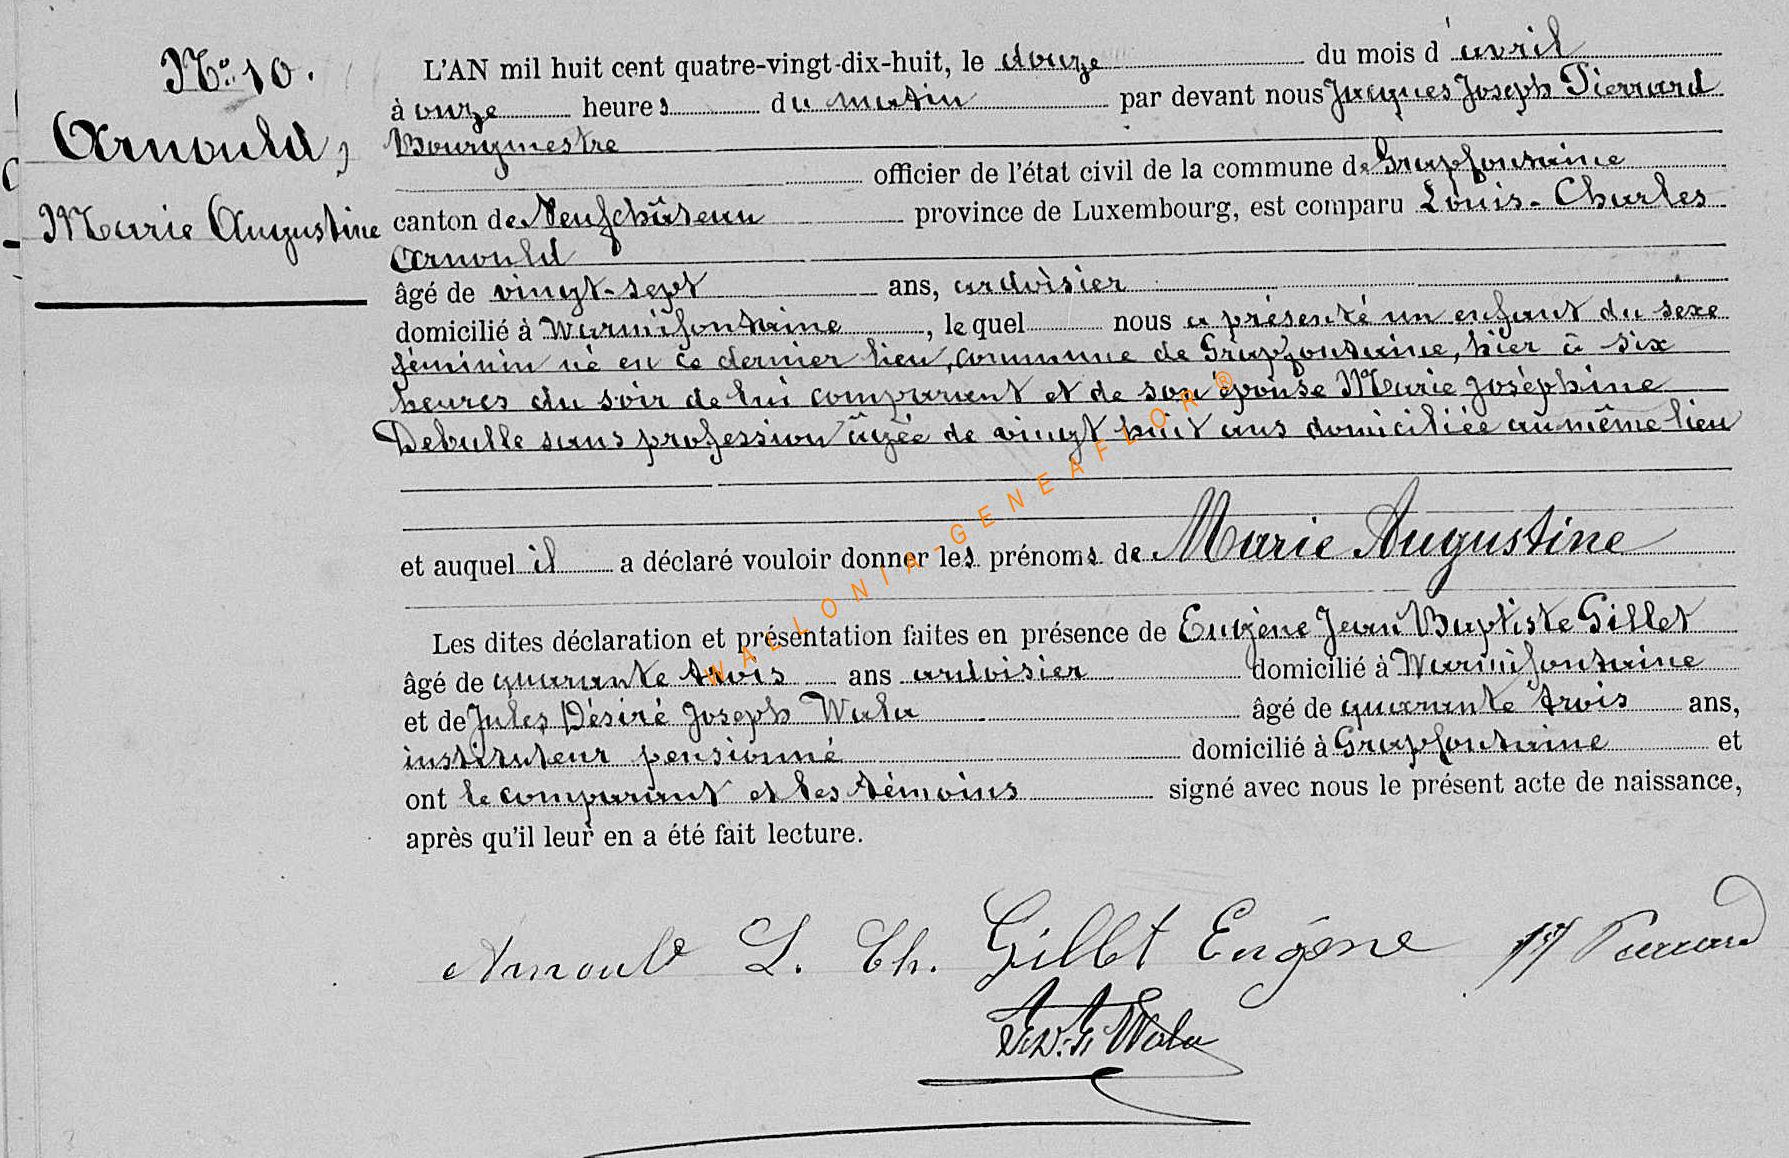 No. 10.
Arnould,
Marie Augustine
L'AN mil huit cent quatre-vingt-dix-huit, le douze du mois d'avril
à onze heures du matin par devant nous Jacques Joseph Pierrard
Bourgmestre
officier de l'état civil de la commune de Grapfontaine
canton de Neufchâteau province de Luxembourg, est comparu Louis-Charles
Arnould
âgé de vingt-sept ans, ardoisier
domicilié à Warmifontaine, lequel nous a présenté un enfant du sexe
féminin né en ce dernier lieu, commune de Grapfontaine, hier à six
heures du soir de lui comparant et de son épouse Marie Joséphine
Debulle sans profession âgée de vingt huit ans domiciliée au même lieu
et auquel il a déclaré vouloir donner les prénoms de Marie Augustine
Les dites déclaration et présentation faites en présence de Eugène Jean Baptiste Gillet
âgé de quarante trois ans ardoisier domicilié à Warmifontaine
et de Jules Désiré Joseph Wala âgé de quarante trois ans,
instituteur pensionné domicilié à Grapfontaine et
ont le comparant et les témoins signé avec nous le présent acte de naissance,
après qu'il leur en a été fait lecture.
Arnould L. Ch. Gillet Eugène JJ Pierrard
Wala
WALLONIA-GENEAFLOR®